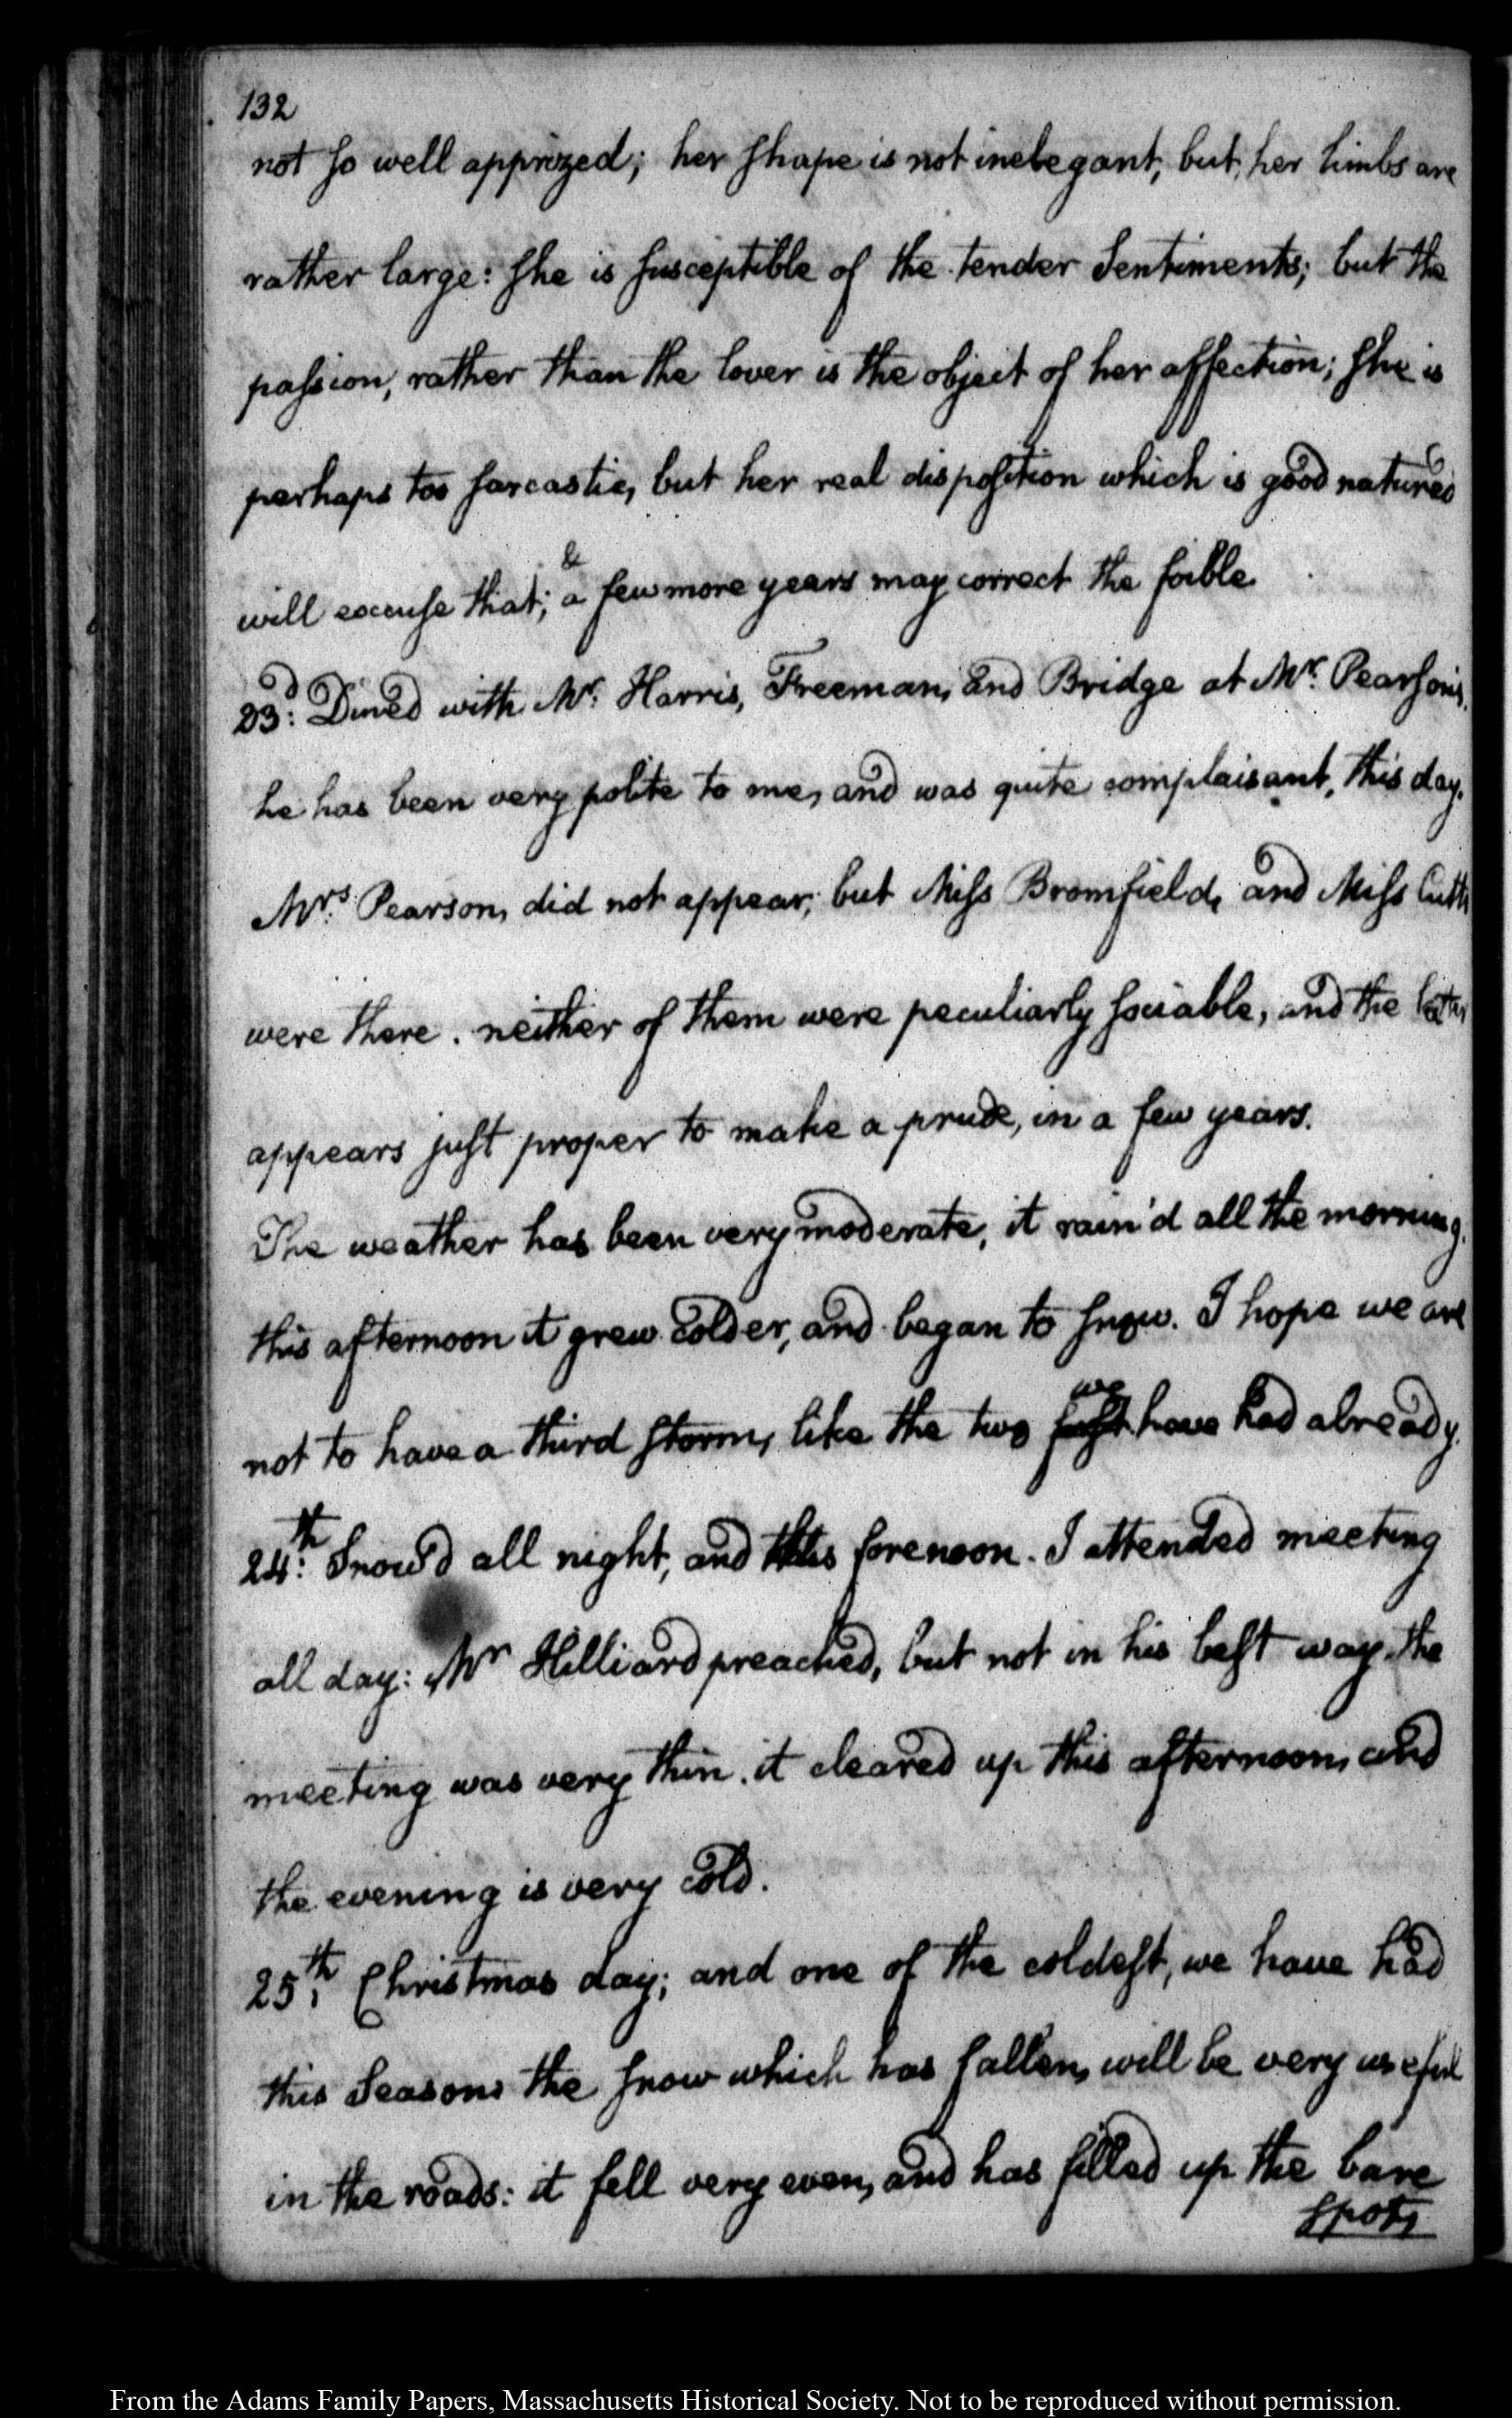 132
not so well apprized; her shape is not inelegant, but her limbs are
rather large: she is susceptible of the tender Sentiments; but the
passion, rather than the lover is the object of her affection; she is
perhaps too sarcastic, but her real disposition which is good natured
&
will excuse that; a few more years may correct the foible
23d: Dined with Mr. Harris, Freeman, and Bridge at Mr. Pearson's,
he has been very polite to me, and was quite complaisant, this day.
Mrs. Pearson, did not appear; but Miss Bromfield, and Miss Cutts
were there. neither of them were peculiarly sociable, and the latter
appears just proper to make a prude, in a few years.
The weather has been very moderate, it rain'd all the morning.
this afternoon it grew colder, and began to snow. I hope we are
we
not to have a third storm, like the two have had already.
24th: Snow'd all night, and this forenoon. I attended meeting
all day: Mr Hilliard preached, but not in his best way. the
meeting was very thin. it cleared up this afternoon, and
the evening is very cold.
25th. Christmas day; and one of the coldest, we have had
this Season: the snow which has fallen, will be very useful
in the roads: it fell very even, and has filled up the bare
spots
From the Adams Family Papers, Massachusetts Historical Society. Not to be reproduced without permission.